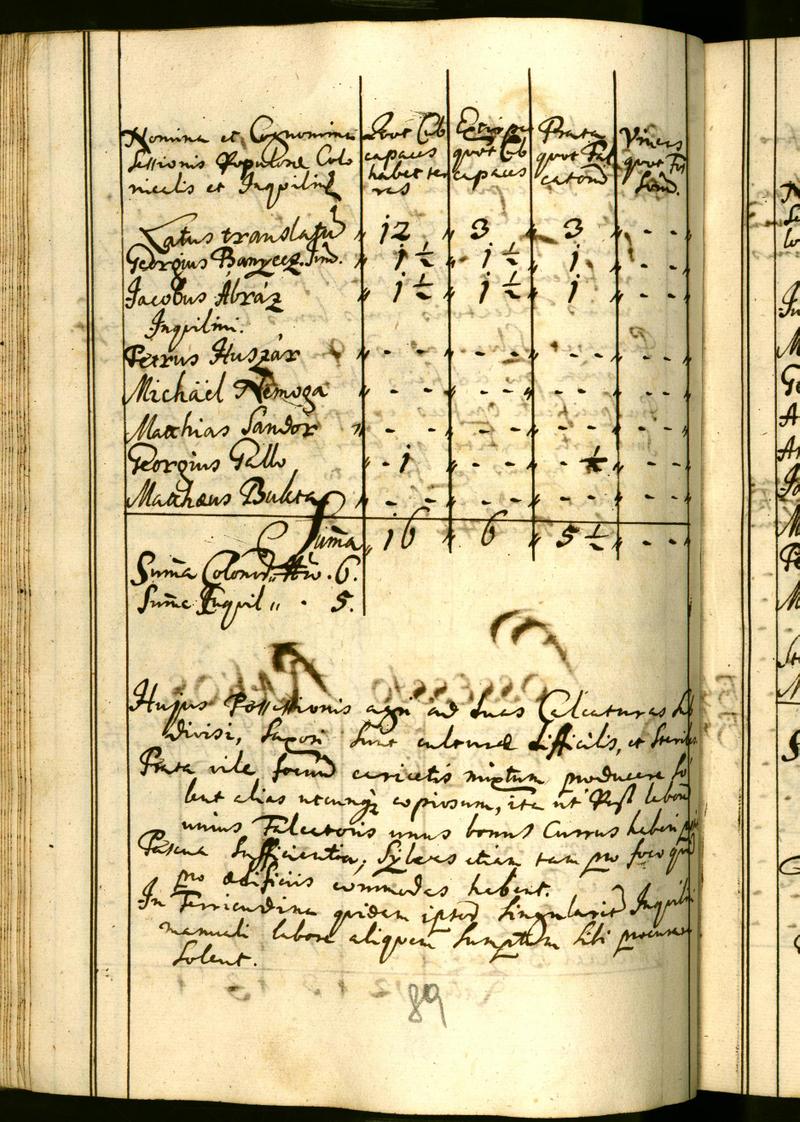 Nomina et Cognomina
Sessionis Populorũ Colo
nicalis et Inquilinũ
Quot Cub
capaces
habet ter
res
Extirpa
quot Cub
capaces
Prata
quot Fal
catorũ
Vineas
quot Fos
sorũ.
Latus translatũ " 12 " 3 " 3 " - - "
Georgius Banyecz Jud. " 1 ½ " 1 ½ " 1 " - - "
Jacobus Abráz " 1 ½ " 1 ½ " 1 " - - "
Inquilini.
Petrus Huszár " - - - " - - - " - - - " - - "
Michäel Nemoga " - - - " - - - " - - - " - - "
Matthias Sandor " - - - " - - - " - - - " - - "
Georgius Gallo " - 1 " - - - " - - ½ " - - "
Matthæus Bukta " - - - " - - - " - - - " - - "
Sum̃a " 16 " 6 " 5 ½ " - - "
Sum̃a Colonorũ . 6.
Sum̃a Inquil " . 5.
Hujus Possessionis agri ad duas Calcaturas
divisi, Saxosi sunt culturæ difficilis, et
Prata vile foenũ caricetis mixtum producere so
lent alias utcunq̃ copiosum, ita ut Post laborẽ
unius Falcatoris unus bonus Currus haberi
Pascua Sufficientia, Sylvas etiam tam pro foco quã
pro ædificiis commodas habent.
In quidem Inquilini
manuali labore aliquem Sumptum sibi procurare
Solent.
89